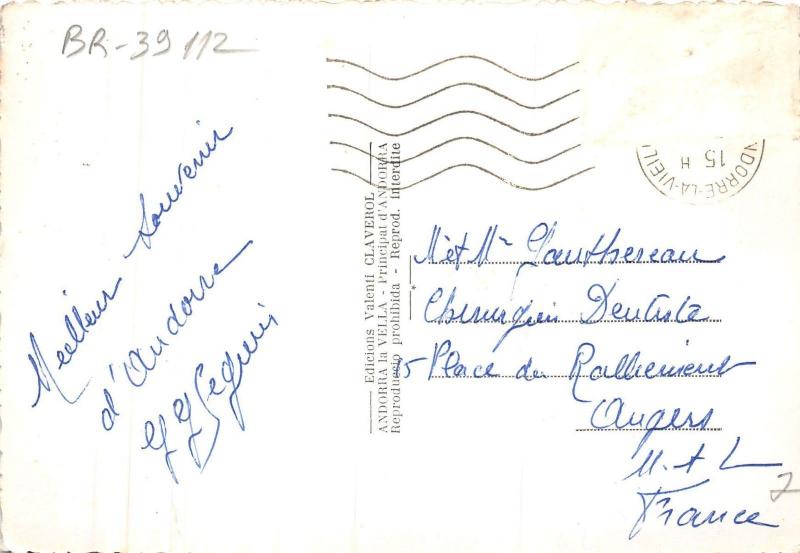 BR-39112
Meilleur souvenir
d'Andorre
Edicions Valenti CLAVEROL
ANDORRA la VELLA - Principat d'ANDORRA
Reproduccio prohibida - Reprod. interdite
NDORRE-LA-VIEIL
15 H
M et Mme
Chirurgien Dentiste
15 Place du Ralliement
Angers
M. et L
France